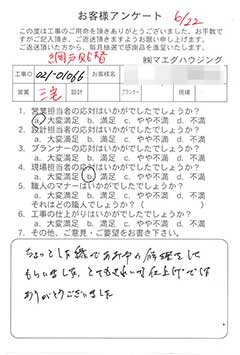 お客様アンケート 6/22
この度は工事のご用命を頂きありがとうございました。お手数で
すがご記入頂き、ご返送頂きますようお願い申し上げます。
ご返送頂いた方から、毎月抽選で感謝品を進呈いたします。
網戸貼替 ㈱マエダハウジング
工事ID 021-01066 お客様名
営業 三宅 設計 プランナー 現場
1. 営業担当者の応対はいかがでしたでしょうか?
a. 大変満足 b. 満足 c. やや不満 d. 不満
2. 設計担当者の応対はいかがでしたでしょうか?
a. 大変満足 b. 満足 c. やや不満 d. 不満
3. プランナーの応対はいかがでしたでしょうか?
a. 大変満足 b. 満足 c. やや不満 d. 不満
4. 現場担当者の応対はいかがでしたでしょうか?
a. 大変満足 b. 満足 c. やや不満 d. 不満
5. 職人のマナーはいかがでしたでしょうか?
a. 大変満足 b. 満足 c. やや不満 d. 不満
それはどの職人でしょうか?( )
6. 工事の仕上がりはいかがでしたでしょうか?
a. 大変満足 b. 満足 c. やや不満 d. 不満
7. その他、ご意見・ご要望をお書き下さい。
ちょっとした
もらいました とてもきれいな仕上げでした
ありがとうございました